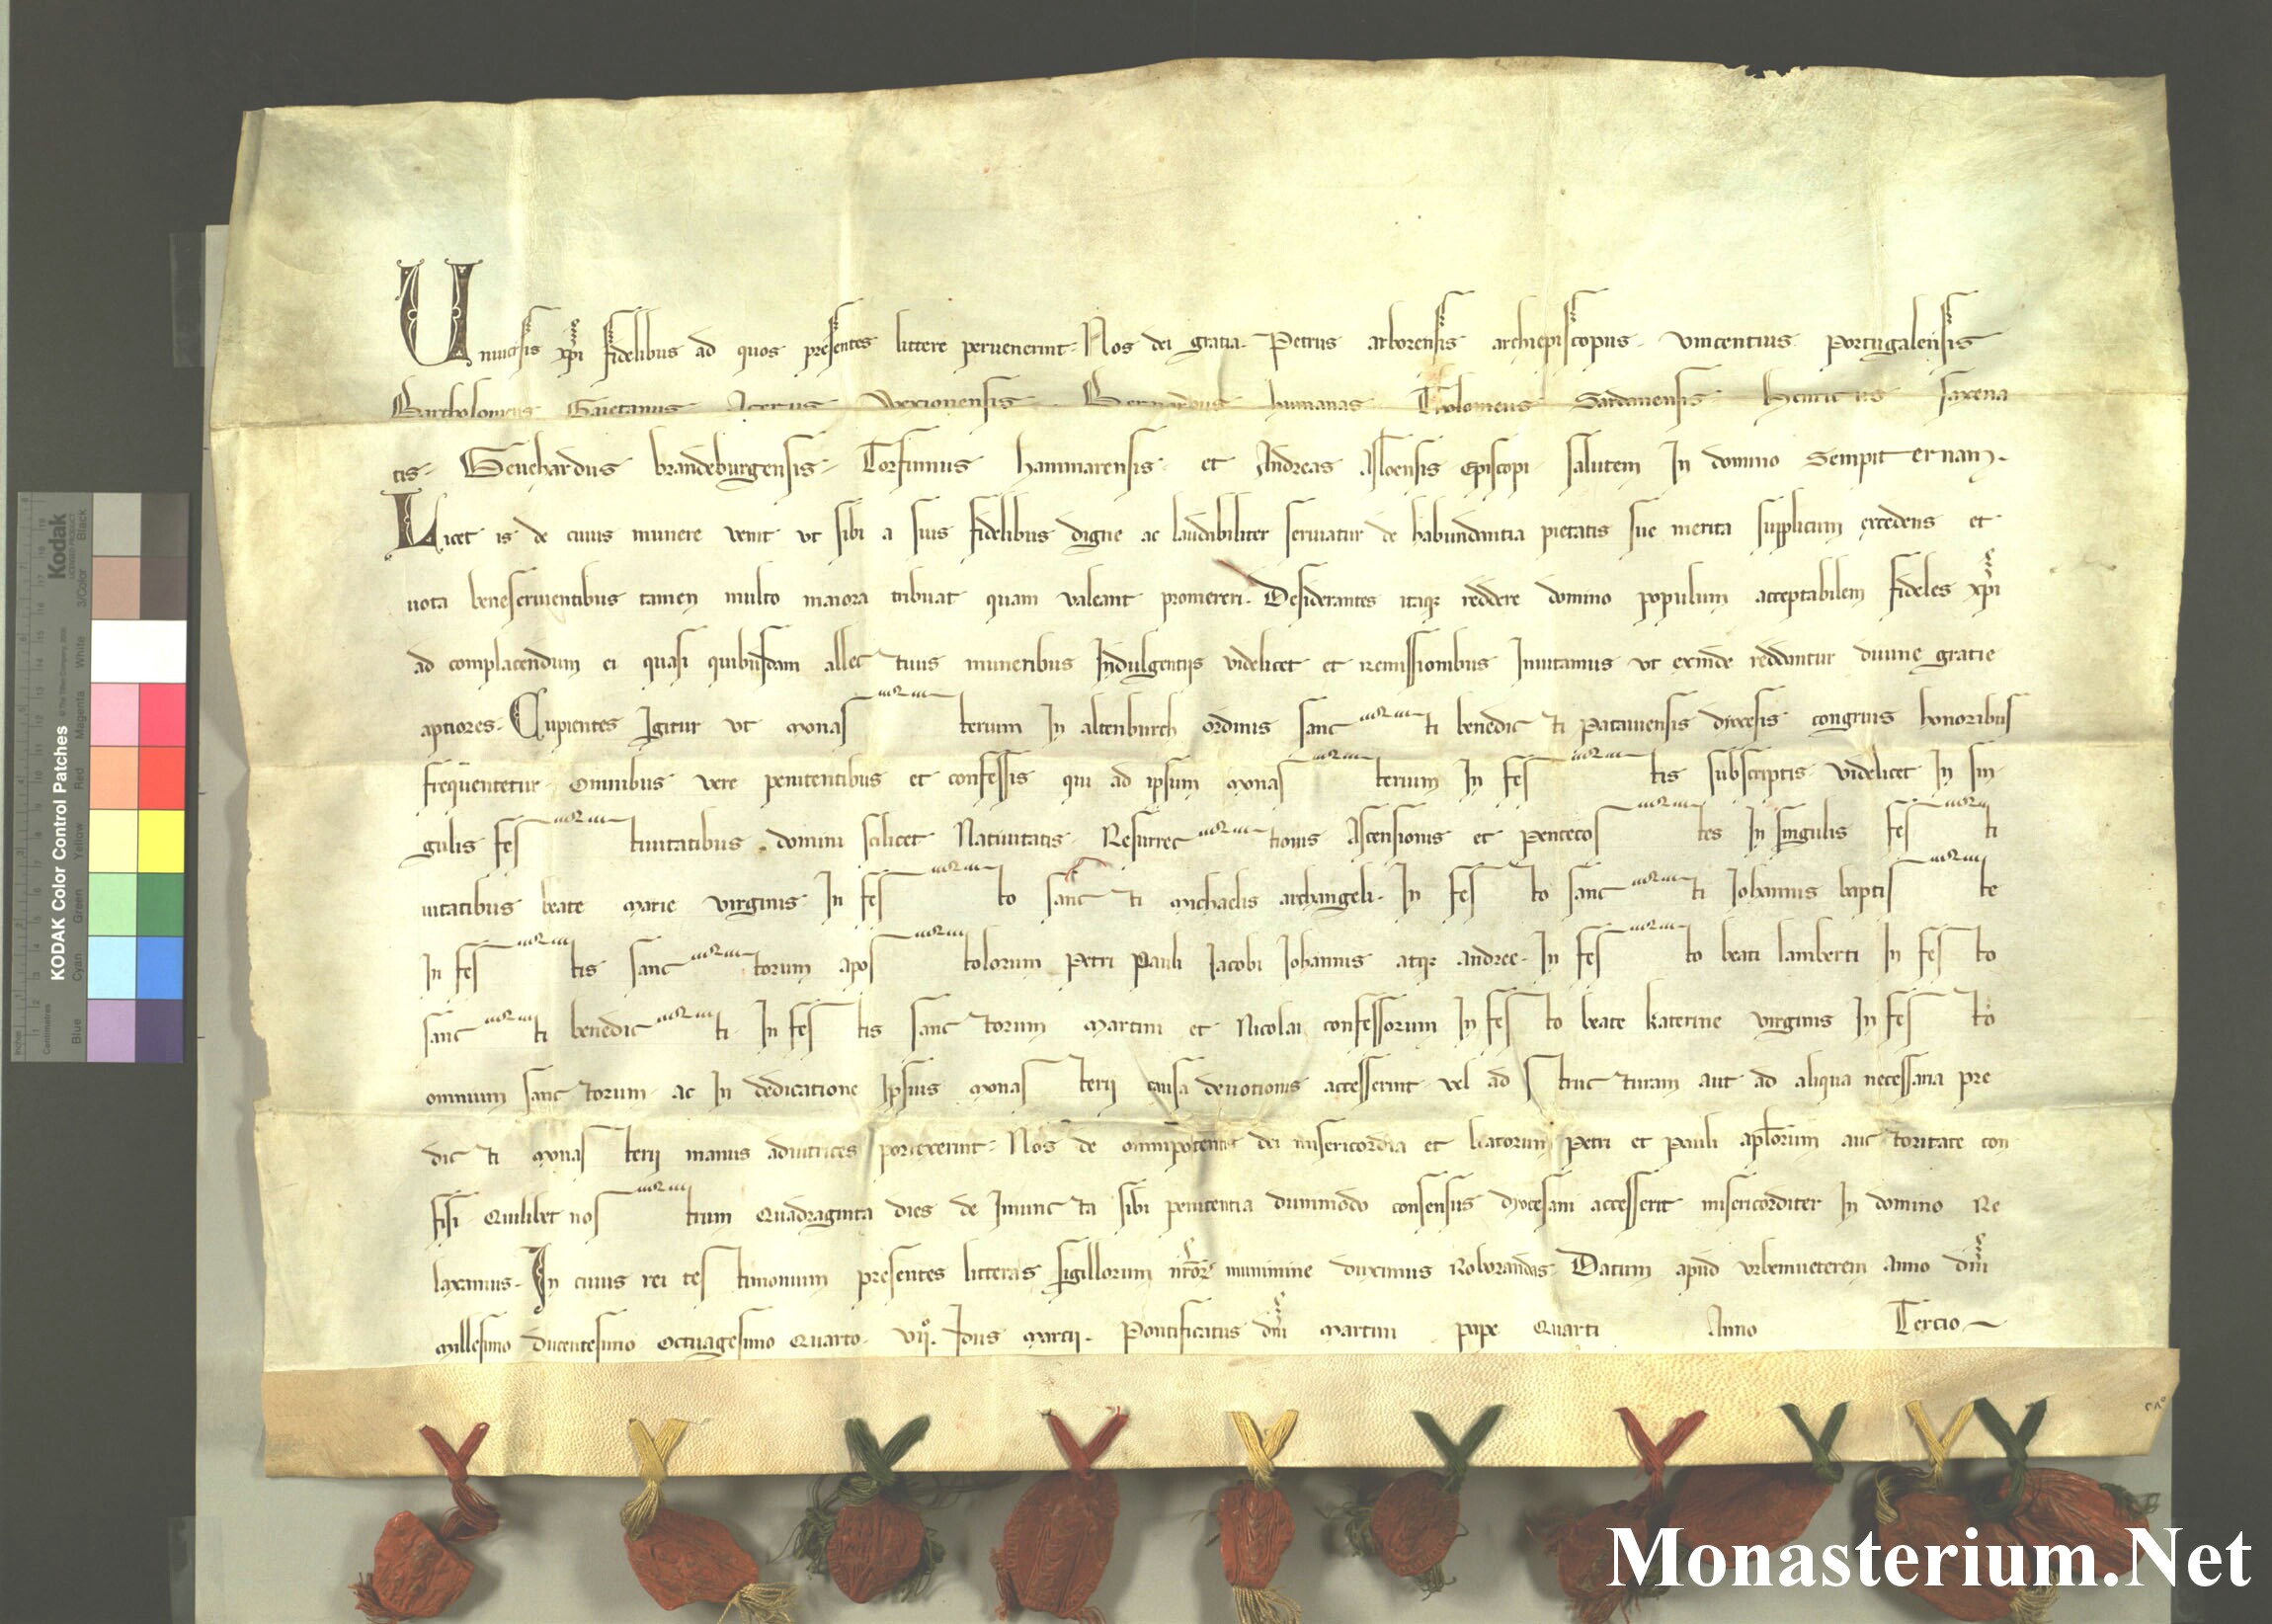 Uniuersis xpi fidelibus ad quos presentes littere peruenerint. Nos dei gratia. Petrus arborensis archiepiscopus. vincentius Portugalensis
Bartholomeus Gaietanus Wexionensis Bernardus humanas Tholomeus Sardanensis Henricus saxena
tis. Geuehardus brandeburgensis. Torfinnus hammarensis. et Andreas Asloensis Episcopi salutem In domino Sempiternam.
Licet is de cuius munere venit ut sibi a suis fidelibus digne ac laudabiliter seruiatur de habundantia pietatis sue merita supplicum excedens et
uota beneseruientibus tamen multo maiora tribuat quam valeant promereri. Desiderantes itaq; reddere domino populum acceptabilem fideles xpi
ad complacendum ei quasi quibusdam allectiuis muneribus Indulgentijs videlicet et remissionibus Inuitamus ut exinde reddantur diuine gratie
aptiores. Cupientes Igitur ut Monasterium In altenburch ordinis sancti benedicti Patauiensis dyocesis congruis honoribus
frequentetur. omnibus vere penitentibus et confessis qui ad ipsum Monasterium In festis subscriptis videlicet In sin
gulis festiuitatibus domini scilicet Natiuitatis. Resurrectionis Ascensionis et Pentecostes In singulis festi
uitatibus beate Marie virginis In festo sancti Michaelis archangeli. In festo sancti Iohannis baptiste
In festis sanctorum apostolorum Petri Pauli Iacobi Iohannis atq; andree. In festo beati lamberti In festo
sancti benedicti. In festis sanctorum Martini et Nicolai confessorum In festo beate katerine virginis In festo
omnium sanctorum ac In dedicatione Ipsius Monasterij causa deuotionis accesserint vel ad structuram aut ad aliqua necessaria pre
dicti Monasterij manus adiutrices porrexerint. Nos de omnipotentis dei misericordia et beatorum Petri et Pauli aplorum auctoritate con
fisi Quilibet nostrum Quadraginta dies de Iniuncta sibi penitentia dummodo consensus dyocesani accesserit misericorditer In domino Re
laxamus. In cuius rei testimonium presentes litteras sigillorum nror munimine duximus Roborandas. Datum apud vrbemueterem anno dni
Millesimo ducentesimo Octuagesimo Quarto. vij. Idus Martij. Pontificatus dni Martini pape Quarti Anno Tercio
KODAK Color Control Patches
Blue Cyan Green Yellow Red Magenta White 3/Color Black
Kodak
Inches
Centimetres
Monasterium.Net